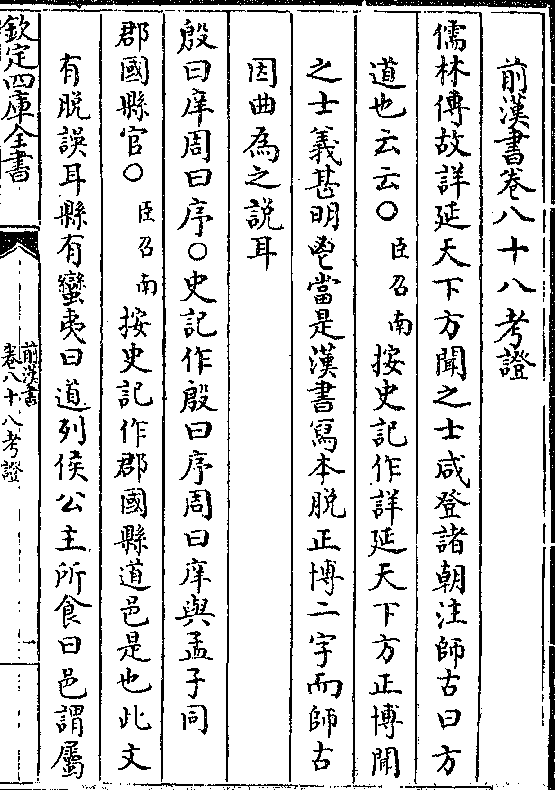 前漢書卷八十八考證
儒林傳故詳延天下方聞之士咸登諸朝注師古曰方
道也云云○臣召南按史記作詳延天下方正博聞
之士義甚明鬯當是漢書寫本脫正博二字而師古
因曲為之說耳
殷曰庠周曰序○史記作殷曰序周曰庠與孟子同
郡國縣官○臣召南按史記作郡國縣道邑是也此文
有脫誤耳縣有蠻夷曰道列侯公主所食曰邑謂屬
欽定四庫全書
前漢書
卷八十八考證
一